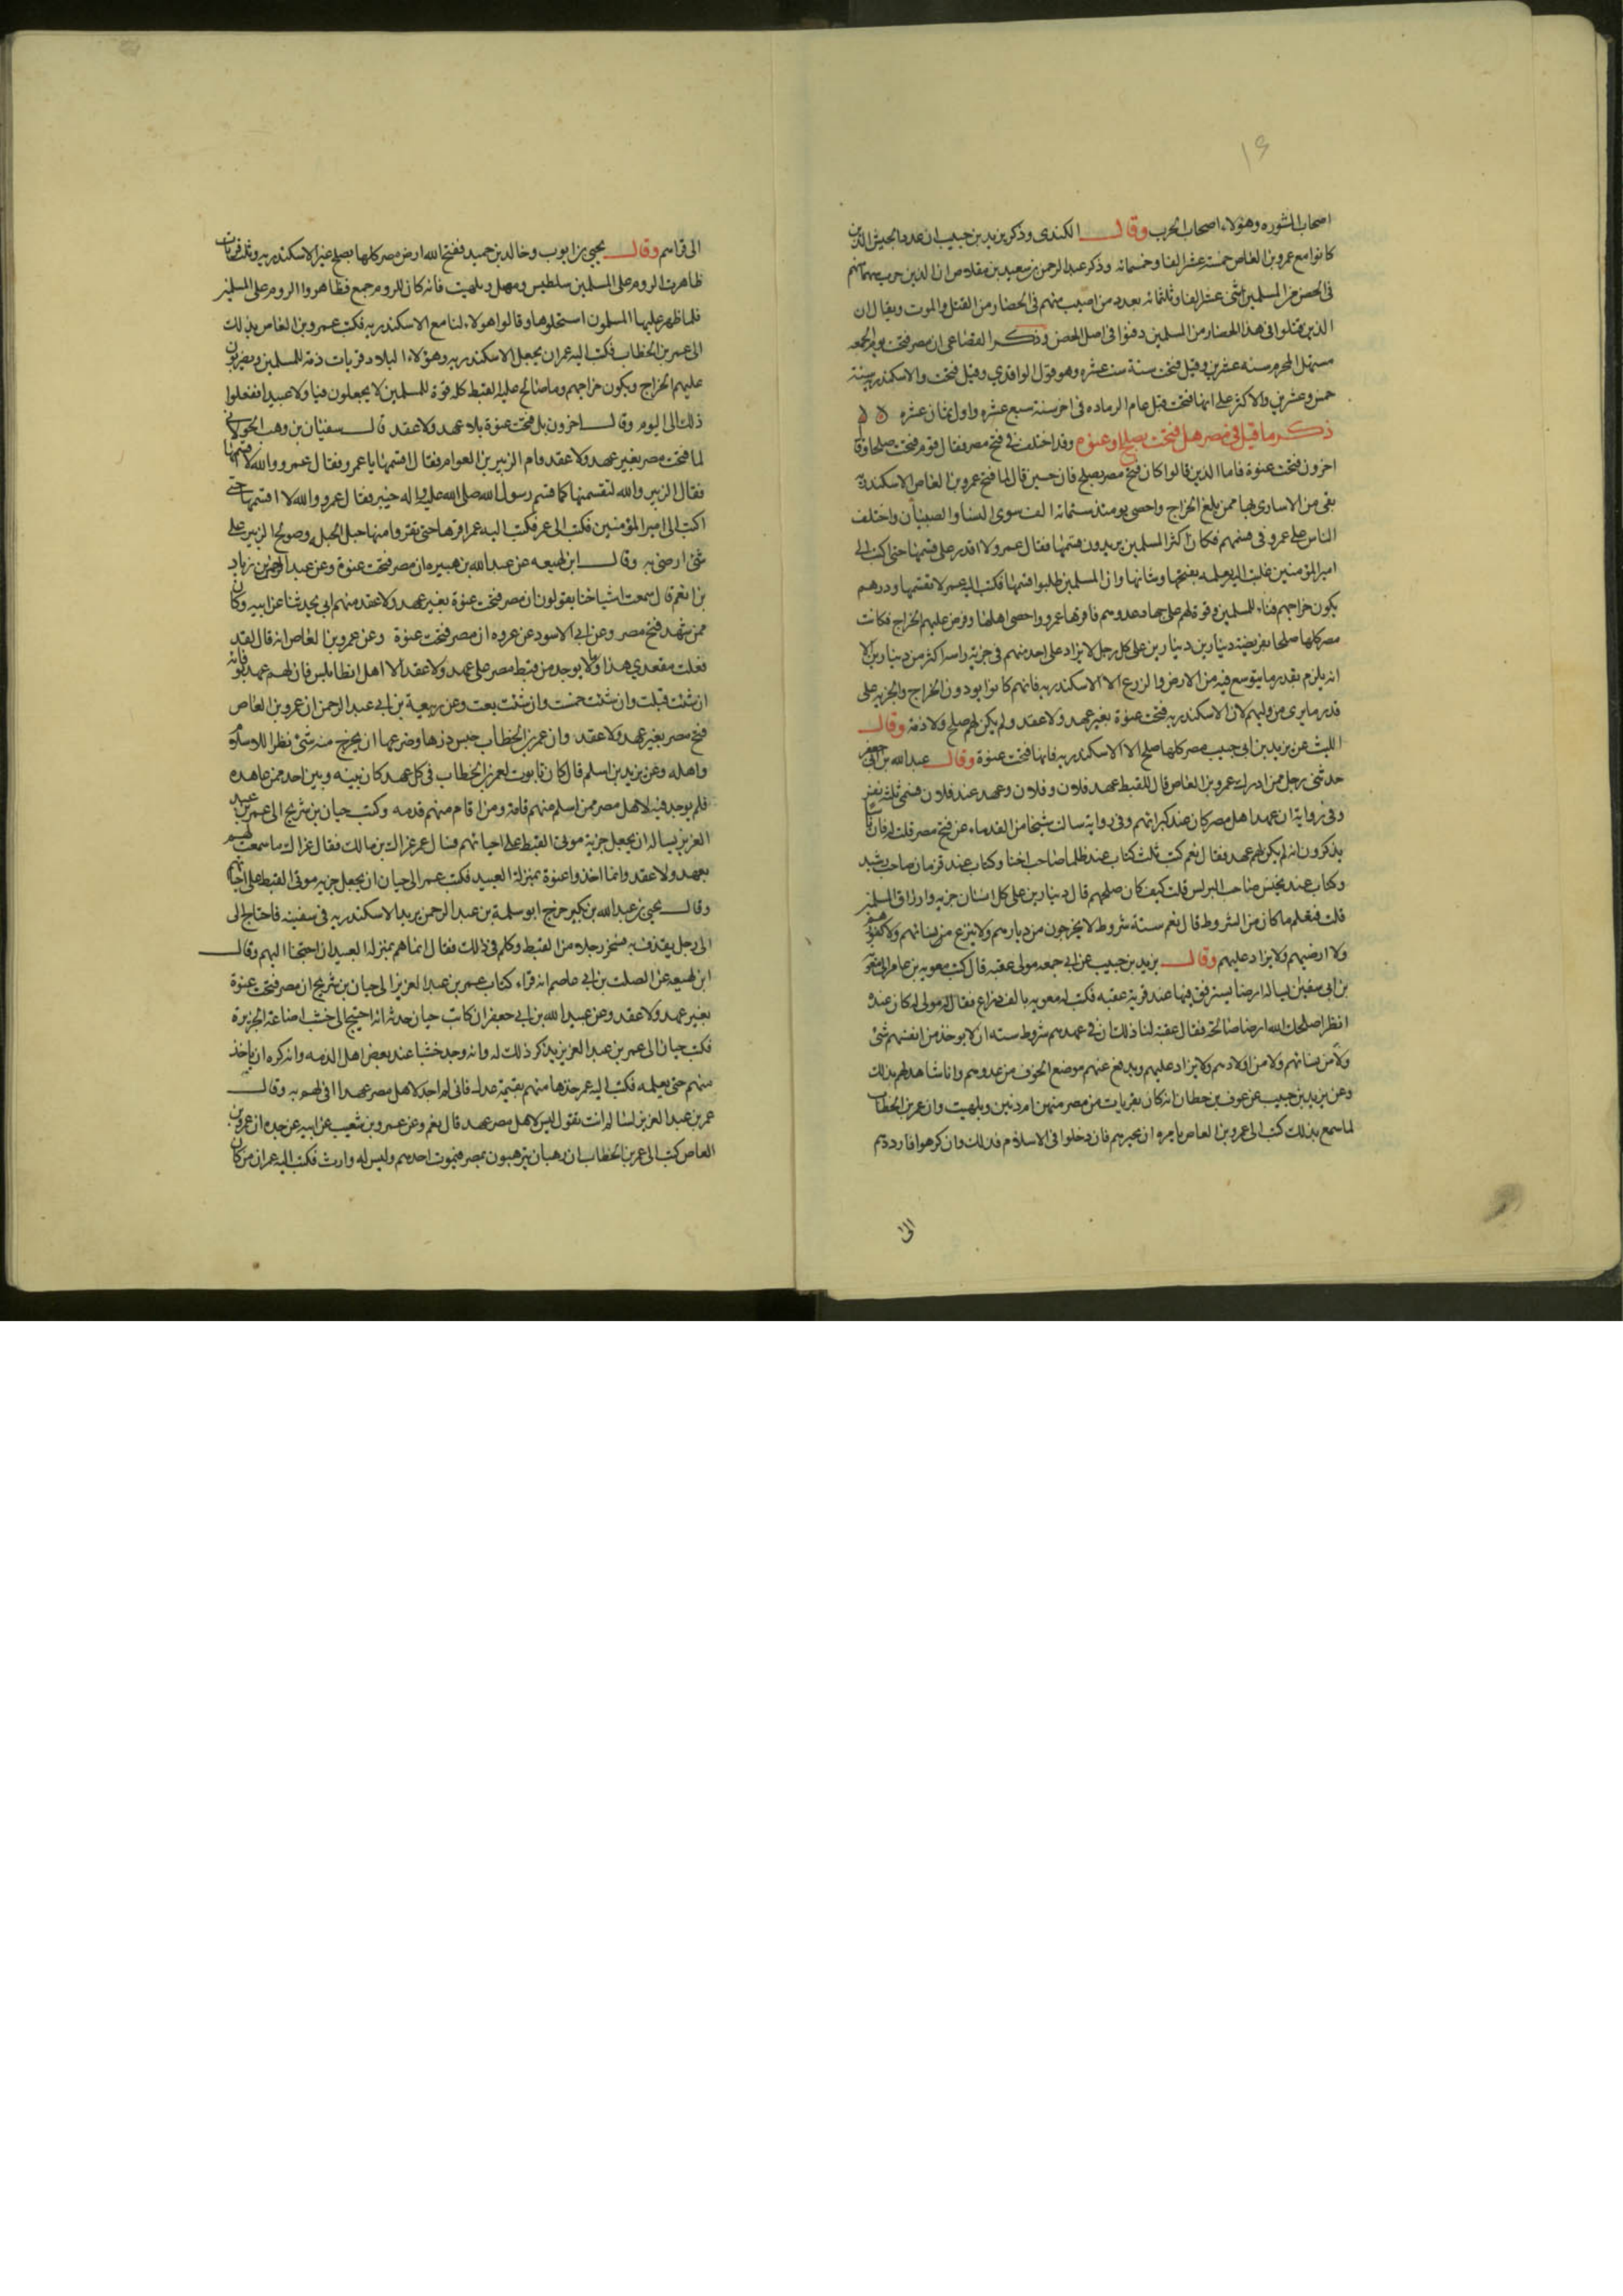 ١٦
اصحاب المشوره وهؤلاء اصحاب الحرب وقال الكندى وذكر يزيد بن حبيب ان عدد الجيش الذين
كانوا مع عمرو بن العاص خمسة عشر الفا وخمسمائه وذكر عبد الرحمن بن سعيد بن مقلاص ان الذين جرت سهمانهم
فى الحصن من المسلمين اثنى عشر الفا وثلثمائه بعدد من اصيب منهم فى الحصار من القتل والموت ويقال ان
الذين قتلوا فى هذا الحصار من المسلمين دفنوا فى اصل الحصن وذكر القضاعى ان مصر فتحت يوم الجمعه
مستهل المحرم سنه عشرين وقيل فتحت سنة ست عشره وهو قول الواقدي وقيل فتحت والاسكندريه سنة
خمس وعشرين والاكثر على انها فتحت قبل عام الرماده فى اخر سنة سبع عشره واول ثمان عشره
ذكر ما قيل فى مصر هل فتحت بصلح او عنوه وقد اختلف فى فتح مصر فقال قوم فتحت صلحا وقال
اخرون فتحت عنوة فاما الذين قالوا كان فتح مصر بصلح فان حسين قال لما فتح عمرو بن العاص الاسكندريه
بقى من الاسارى بها ممن بلغ الخراج واحصى يومئذ ستمائه الف سوى النسا والصبيان واختلف
الناس على عمرو فى قسمهم فكان اكثر المسلمين يريدون قسمها فقال عمرو لا اقدر على قسمها حتى اكتب الى
امير المؤمنين فكتب اليه يعلمه بفتحها وشانها وان المسلمين طلبوا قسمها فكتب اليه عمر لا تقسمها وذرهم
يكون خراجهم فئاء للمسلمين وقوة لهم على جهاد عدوهم فاقرها عمرو واحصى اهلها وفرض عليهم الخراج فكانت
مصر كلها صلحا بفريضة دينارين دينارين على كل رجل لا يزاد على احد منهم فى جزية راسه اكثر من دينارين الا
انه يلزم بقدر ما يتوسع فيه من الارض والزرع الا الاسكندريه فانهم كانوا يودون الخراج والجزيه على
قدر ما يرى من وليهم لان الاسكندريه فتحت عنوة بغير عهد ولا عقد ولم يكن لهم صلح ولا ذمه وقال
الليث عن يزيد بن ابى حبيب مصر كلها صلح الا الاسكندريه فانها فتحت عنوة وقال عبد الله بن ابى جعفر
حدثنى رجل ممن ادرك عمرو بن العاص قال للقبط عهد فلان وفلان وعهد عند فلان فسمى ثلثة نفر
وفى رواية ان عهد اهل مصر كان عند كبرائهم وفى رواية سالت شيخا من القدماء عن فتح مصر قلت له فان ناسا
يذكرون انه لم يكن لهم عهد فقال نعم كتب ثلث كتاب عند ظلما صاحب اخنا وكتاب عند قزمان صاحب رشيد
وكتاب عند يحنس صاحب البرلس قلت كيف كان صلحهم قال دينارين على كل انسان جزيه وارزاق المسلمين
قلت فتعلم ما كان من الشروط قال نعم ستة شروط لا يخرجون من ديارهم ولا ينزع من نسائهم ولا كفورهم
ولا ارضيهم ولا يزاد عليهم وقال يزيد بن حبيب عن ابى جمعه مولى عقبه قال كتب معويه بن عامر الى معويه
بن ابى سفين يساله ارضا يسترفق فيها عند قرية عقبه فكتب له معويه بالف ذراع فقال له مولى له كان عنده
انظر اصلحك الله ارضا صالحة فقال عقبه لنا ذلك ان فى عهدهم شروط سته ان لا يوخذ من انفسهم شئ
ولا من نسائهم ولا من اولادهم ولا يزاد عليهم ويدفع عنهم موضع الخوف من عدوهم وانا شاهد لهم بذلك
وعن يزيد بن حبيب عن عوف بن حطان انه كان بقريات من مصر منهن ام دنين وبلهيت وان عمر بن الخطاب
لما سمع بذلك كتب الى عمرو بن العاص يامره ان يخيرهم فان دخلوا فى الاسلام فذلك وان كرهوا فارددهم
الى
الى قراهم وقال يحيى بن ايوب وخالد بن حميد ففتح الله ارض مصر كلها بصلح غير الاسكندريه وثلث قريات
ظاهرت الروم على المسلمين سلطيس ومصل وبلهيت فانه كان للروم جمع فظاهروا الروم على المسلمين
فلما ظهر عليها المسلمون استحلوها وقالوا هولاء لنا مع الاسكندريه فكتب عمرو بن العاص بذلك
الى عمر بن الخطاب فكتب اليه عمر ان يجعل الاسكندريه وهؤلاء البلاد قريات ذمة للمسلمين ويضربون
عليهم الخراج ويكون خراجهم وما صالح عليه القبط كله قوة للمسلمين لا يجعلون فيا ولا عبيدا ففعلوا
ذلك الى اليوم وقال اخرون بل فتحت عنوة بلا عهد ولا عقد قال سفيان بن وهب الخولانى
لما فتحت مصر بغير عهد ولا عقد قام الزبير بن العوام فقال اقسمها يا عمرو فقال عمرو والله لا اقسمها
فقال الزبير والله لتقسمنها كما قسم رسول الله صلى الله عليه واله خيبر فقال عمرو والله لا اقسمها حتى
اكتب الى امير المؤمنين فكتب الى عمر فكتب اليه عمر اقرها حتى تغزوا منها حبل الحبلة وصولح الزبير على
شئ ارضى به وقال ابن لهيعه عن عبد الله بن هبيره ان مصر فتحت عنوة وعن عبد الرحمن بن زياد
بن انعم قال سمعت اشياخنا يقولون ان مصر فتحت عنوة بغير عهد ولا عقد منهم ابى يحدثنا عن ابيه وكان
ممن شهد فتح مصر وعن ابى الاسود عن عروه ان مصر فتحت عنوة وعن عمرو بن العاص انه قال لقد
قعدت مقعدي هذا ولا يوجد من قبط مصر على عهد ولا عقد الا اهل انطابلس فان لهم عهد يوفى به
ان شئت قتلت وان شئت خمست وان شئت بعت وعن ربيعة بن ابى عبد الرحمن ان عمرو بن العاص
فتح مصر بغير عهد ولا عقد وان عمر بن الخطاب حبس درها وضرعها ان يخرج منه شئ نظرا للاسلام
واهله وعن يزيد بن اسلم قال كان تابوت لعمر بن الخطاب فى كل عهد كان بينه وبين احد ممن عاهده
فلم يوجد فيه لاهل مصر ممن اسلم منهم فامة ومن اقام منهم فذمه وكتب حيان بن شريح الى عمر بن عبد
العزيز يساله ان يجعل جزية موتى القبط على احيائهم فسال عمر عراك بن مالك فقال عراك ما سمعت لهم
بعهد ولا عقد وانما اخذوا عنوة بمنزلة العبيد فكتب عمر الى حيان ان يجعل جزيه موتى القبط على احيائهم
وقال يحيى بن عبد الله بن بكير خرج ابو سلمة بن عبد الرحمن يريد الاسكندريه فى سفينه فاحتاج الى
الى رجل يقذف به فسخر رجلا من القبط وكلم فى ذلك فقال انما هم بمنزلة العبيد ان احتجنا اليهم وقال
ابن لهيعه عن الصلت بن ابى عاصم انه قراء كتاب عمر بن عبد العزيز الى حيان بن شريح ان مصر فتحت عنوة
بغير عهد ولا عقد وعن عبيد الله بن ابى جعفر ان كاتب حيان حدثه انه احتيج الى خشب لصناعة الجزيرة
فكتب حيان الى عمر بن عبد العزيز يذكر ذلك له وانه وجد خشبا عند بعض اهل الذمه وانه كره ان ياخذ
منهم حتى يعلمه فكتب اليه عمر خذها منهم بقيمة عدل فانى لم اجد لاهل مصر عهدا افى لهم به وقال
عمر بن عبد العزيز لسالم انت تقول ليس لاهل مصر عهد قال نعم وعن عمرو بن شعيب عن ابيه عن جده ان عمرو بن
العاص كتب الى عمر بن الخطاب ان رهبان يترهبون بمصر فيموت احدهم وليس له وارث فكتب اليه عمر ان من كان